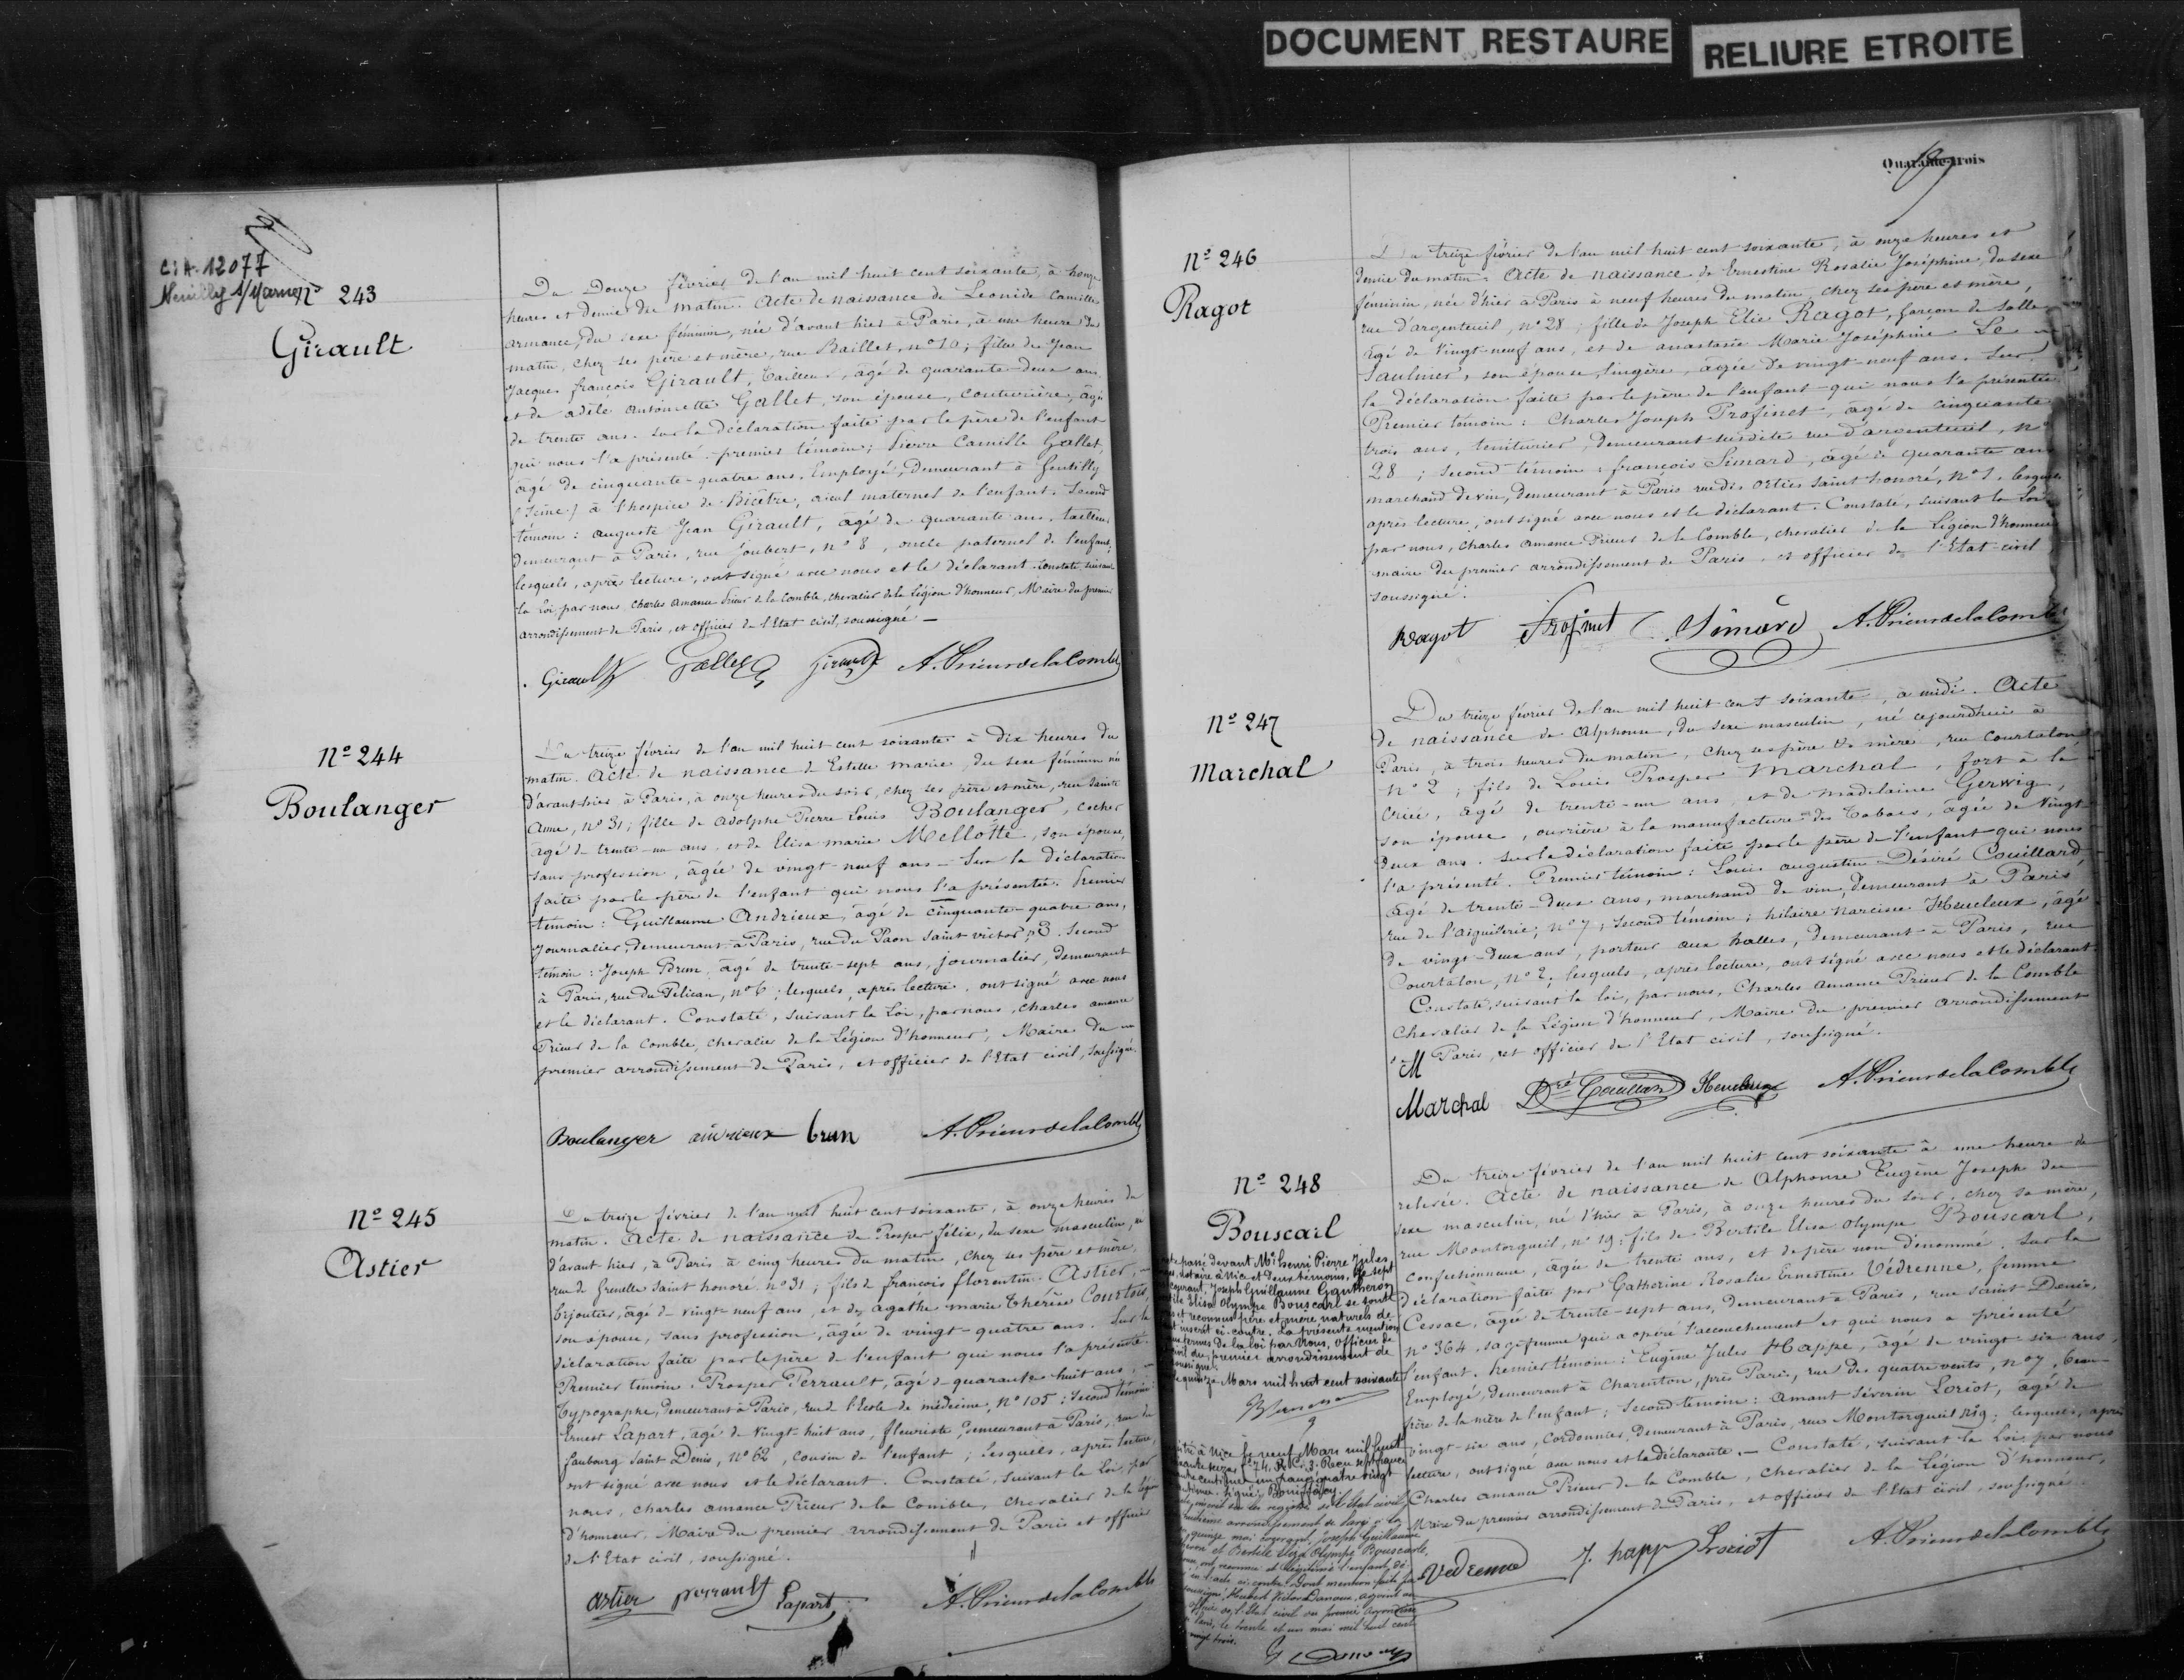 DOCUMENT RESTAURE
RELIURE ETROITE
C.i.A. 12077
Neuilly s/Marne
N° 243
Girault
Du Douze février de l'an mil huit cent soixante, à honze
heures et demie du matin. Acte de naissance de Léonide Camille
armance, du sexe féminin, née d'avant hier à Paris, à une heure du
matin, chez ses père et mère, rue Baillet, n° 10; fille de Jean
Jacques françois Girault, tailleur, âgé de quarante-deux ans
et de adèle antoinette Gallet, son épouse, couturière, âgée
de trente ans. sur la déclaration faite par le père de l'enfant
qui nous l'a présenté. premier témoin; Pierre Camille Gallet,
âgé de cinquante-quatre ans, Employé, demeurant à Gentilly
(Seine) à l'hospice de Bicêtre, aïeul maternel de l'enfant. Second
témoin: auguste Jean Girault, âgé de quarante ans, tailleur
demeurant à Paris, rue Joubert, n° 8, oncle paternel de l'enfant;
lesquels, après lecture, ont signé avec nous et le déclarant. constaté, suivant
la loi, par nous, charles amance Prieur de la Comble, chevalier de la Légion d'honneur, Maire du premier
arrondissement de Paris, et officier de l'Etat civil, soussigné —
Girault Gallet Girault A. Prieur de la Comble
N° 244
Boulanger
Du treize février de l'an mil huit cent soixante à dix heures du
matin. Acte de naissance de Estelle marie, du sexe féminin née
d'avant hier à Paris, à onze heures du soir, chez ses père et mère, rue Sainte
Anne, n° 31; fille de adolphe Pierre Louis Boulanger, cocher
âgé de trente-un ans, et de Elisa marie Mellotte, son épouse,
sans profession, âgée de vingt-neuf ans — Sur la déclaration
faite par le père de l'enfant qui nous l'a présentée. Premier
témoin: Guillaume Andrieux, âgé de cinquante-quatre ans,
Journalier, demeurant à Paris, rue du Paon Saint victor, n° 3. Second
témoin: Joseph Brun, âgé de trente-sept ans, journalier, demeurant
à Paris, rue du Pélican, n° 6; lesquels, après lecture, ont signé avec nous
et le déclarant. Constaté, suivant la Loi, par nous, charles amance
Prieur de la Comble, chevalier de la Légion d'honneur, Maire du
premier arrondissement de Paris, et officier de l'Etat civil, soussigné.
Boulanger andrieux brun A. Prieur de la Comble
N° 245
Astier
Du treize février de l'an mil huit cent soixante, à onze heures du
matin. Acte de naissance de Prosper félix, du sexe masculin, né
d'avant hier, à Paris à cinq heures du matin, chez ses père et mère,
rue de Grenelle Saint honoré n° 31; fils de françois florentin Astier,
bijoutier, âgé de vingt-neuf ans, et de agathe marie thérèse Courtois,
son épouse, sans profession, âgée de vingt-quatre ans. Sur la
déclaration faite par le père de l'enfant qui nous l'a présenté.
Premier témoin. Prosper Perrault, âgé de quarante huit ans,
typographe, demeurant à Paris, rue de l'Ecole de médecine, n° 105; Second témoin:
Ernest Lapart, âgé de vingt-huit ans, fleuriste, demeurant à Paris, rue du
faubourg Saint Denis, n° 62, cousin de l'enfant; lesquels, après lecture,
ont signé avec nous et le déclarant. Constaté, suivant la Loi, par
nous, charles amance Prieur de la Comble, chevalier de la légion
d'honneur, Maire du premier arrondissement de Paris et officier
de l'Etat civil, soussigné.
astier perrault Lapart A. Prieur de la Comble
Quarante-trois
N° 246
Ragot
Du treize février de l'an mil huit cent soixante, à onze heures et
demie du matin. Acte de naissance de Ernestine Rosalie Joséphine, du sexe
féminin, née d'hier à Paris à neuf heures du matin, chez ses père et mère,
rue d'argenteuil, n° 28; fille de Joseph Elie Ragot, garçon de salle
âgé de vingt-neuf ans, et de anastasie Marie Joséphine Le
Saulnier, son épouse, lingère, âgée de vingt-neuf ans. Sur
la déclaration faite par le père de l'enfant qui nous l'a présentée
Premier témoin: Charles Joseph Profinet, âgé de cinquante
trois ans, teinturier, demeurant susdite rue d'argenteuil, n°
28; second témoin: françois Simard, âgé de quarante ans
marchand de vin, demeurant à Paris rue des Orties saint honoré, n° 1. lesquels
après lecture, ont signé avec nous et le déclarant. Constaté, suivant la Loi
par nous, Charles amance Prieur de la Comble, chevalier de la Légion d'honneur
maire du premier arrondissement de Paris, et officier de l'Etat-civil
soussigné.
Ragot Profinet Simard A. Prieur de la Comble
N° 247
Marchal
Du treize février de l'an mil huit cent soixante, à midi. Acte
de naissance de Alphonse, du sexe masculin, né cejourd'hui à
Paris, à trois heures du matin, chez ses père & mère, rue Courtalon
n° 2; fils de Louis Prosper Marchal, fort à la
criée, âgé de trente-un ans, et de madelaine Gerwig,
son épouse, ouvrière à la manufacture des tabacs, âgée de vingt
deux ans. Sur la déclaration faite par le père de l'enfant qui nous
l'a présenté. Premier témoin: Louis augustin Désiré Couillard,
âgé de trente-deux ans, marchand de vin, demeurant à Paris
rue de l'aiguillerie, n° 7; second témoin; hilaire narcisse Heucleux, âgé
de vingt-deux ans, porteur aux halles, demeurant à Paris, rue
Courtalon, n° 2; lesquels, après lecture, ont signé avec nous et le déclarant
Constaté, suivant la loi, par nous, Charles amance Prieur de la Comble
chevalier de la Légion d'honneur, Maire du premier arrondissement
de Paris, et officier de l'Etat civil, soussigné.
Marchal Dré Couillard Heucleux A. Prieur de la Comble
N° 248
Bouscail
passé devant Me Henri Pierre Jules
notaire à Nice et deux témoins, le sept
courant, Joseph Guillaume Gautheron
Elisa Olympe Bouscarl se sont
reconnus père et mère naturels de
inscrit ci-contre. La présente mention
aux termes de la loi par Nous, officier de
civil du premier arrondissement de
soussigné.
quinze Mars mil huit cent soixante
à Nice le neuf Mars mil huit
Signé: Bonifassy.
inscrit sur les registres de l'Etat civil
arrondissement de Paris à la
quinze mai Joseph Guillaume
et Bertile Elisa Olympe Bouscarle,
ont reconnu et légitimé l'enfant dé
l'acte ci-contre. Dont mention faite par
soussigné, Hubert Victor adjoint au
officier de l'Etat civil du premier arrondisse
Paris, le trente et un mai mil huit cent
vingt trois.
Du treize février de l'an mil huit cent soixante à une heure de
relevée. Acte de naissance de Alphonse Eugène Joseph du
sexe masculin, né d'hier à Paris, à onze heures du soir, chez sa mère,
rue Montorgueil, n° 19; fils de Bertile Elisa Olympe Bouscarl,
confectionneuse, âgée de trente ans, et de père non dénommé. Sur la
déclaration faite par Catherine Rosalie Ernestine Védrenne, femme
Cessac, âgée de trente-sept ans, demeurant à Paris, rue saint-Denis,
n° 364, sage femme qui a opéré l'accouchement et qui nous a présenté
l'enfant. Premier témoin: Eugène Jules Happe, âgé de vingt six ans,
Employé, demeurant à Charenton, près Paris, rue des quatre vents, n° 7, beau
frère de la mère de l'enfant; Second témoin: Amant Séverin Loriot, âgé de
vingt-six ans, Cordonnier, demeurant à Paris, rue Montorgueil n° 19; lesquels, après
lecture, ont signé avec nous et la déclarante. — Constaté, suivant la Loi par nous
Charles amance Prieur de la Comble, chevalier de la Légion d'honneur,
Maire du premier arrondissement de Paris, et officier de l'Etat civil, soussigné.
Vedrenne J. happ Loriot A. Prieur de la Comble